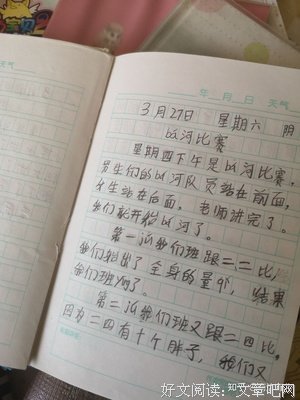 天气
年 月 日 天气
3月27日 星期六 阴
ba河比赛
星期四下午是ba河比赛,
男生们的ba河队员站在前面,
女生站在后面,老师讲完了。
我们就开始ba河了。
第一ju我们班跟二、二比,
我们拙出了全身的量,结果
我们班 了。
第二ju我们班又跟二四比。
因为二四有十个胖子,我们又
好文阅读:文章吧网